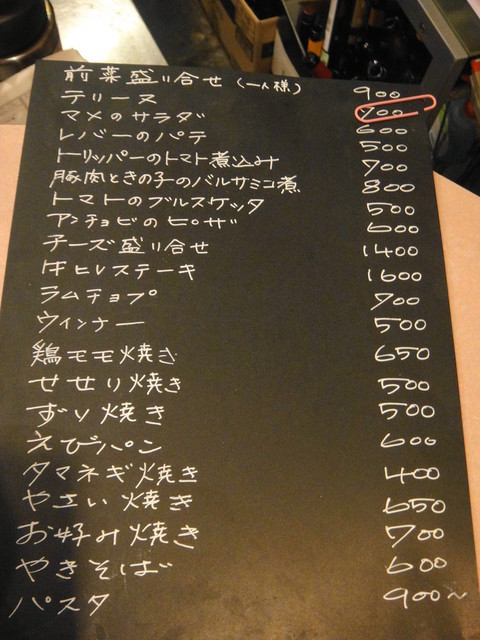 前菜盛り合せ(一人様) 900
テリーヌ 700
マメのサラダ 600
レバーのパテ 500
トリッパーのトマト煮込み 700
豚肉ときの子のバルサミコ煮 800
トマトのブルスケッタ 500
アンチョビのピザ 600
チーズ盛り合せ 1400
牛ヒレステーキ 1600
ラムチョップ 900
ウィンナー 500
鶏モモ焼き 650
せせり焼き 500
ずり焼き 500
えびパン 600
タマネギ焼き 400
やさい焼き 650
お好み焼き 700
やきそば 600
パスタ 900~